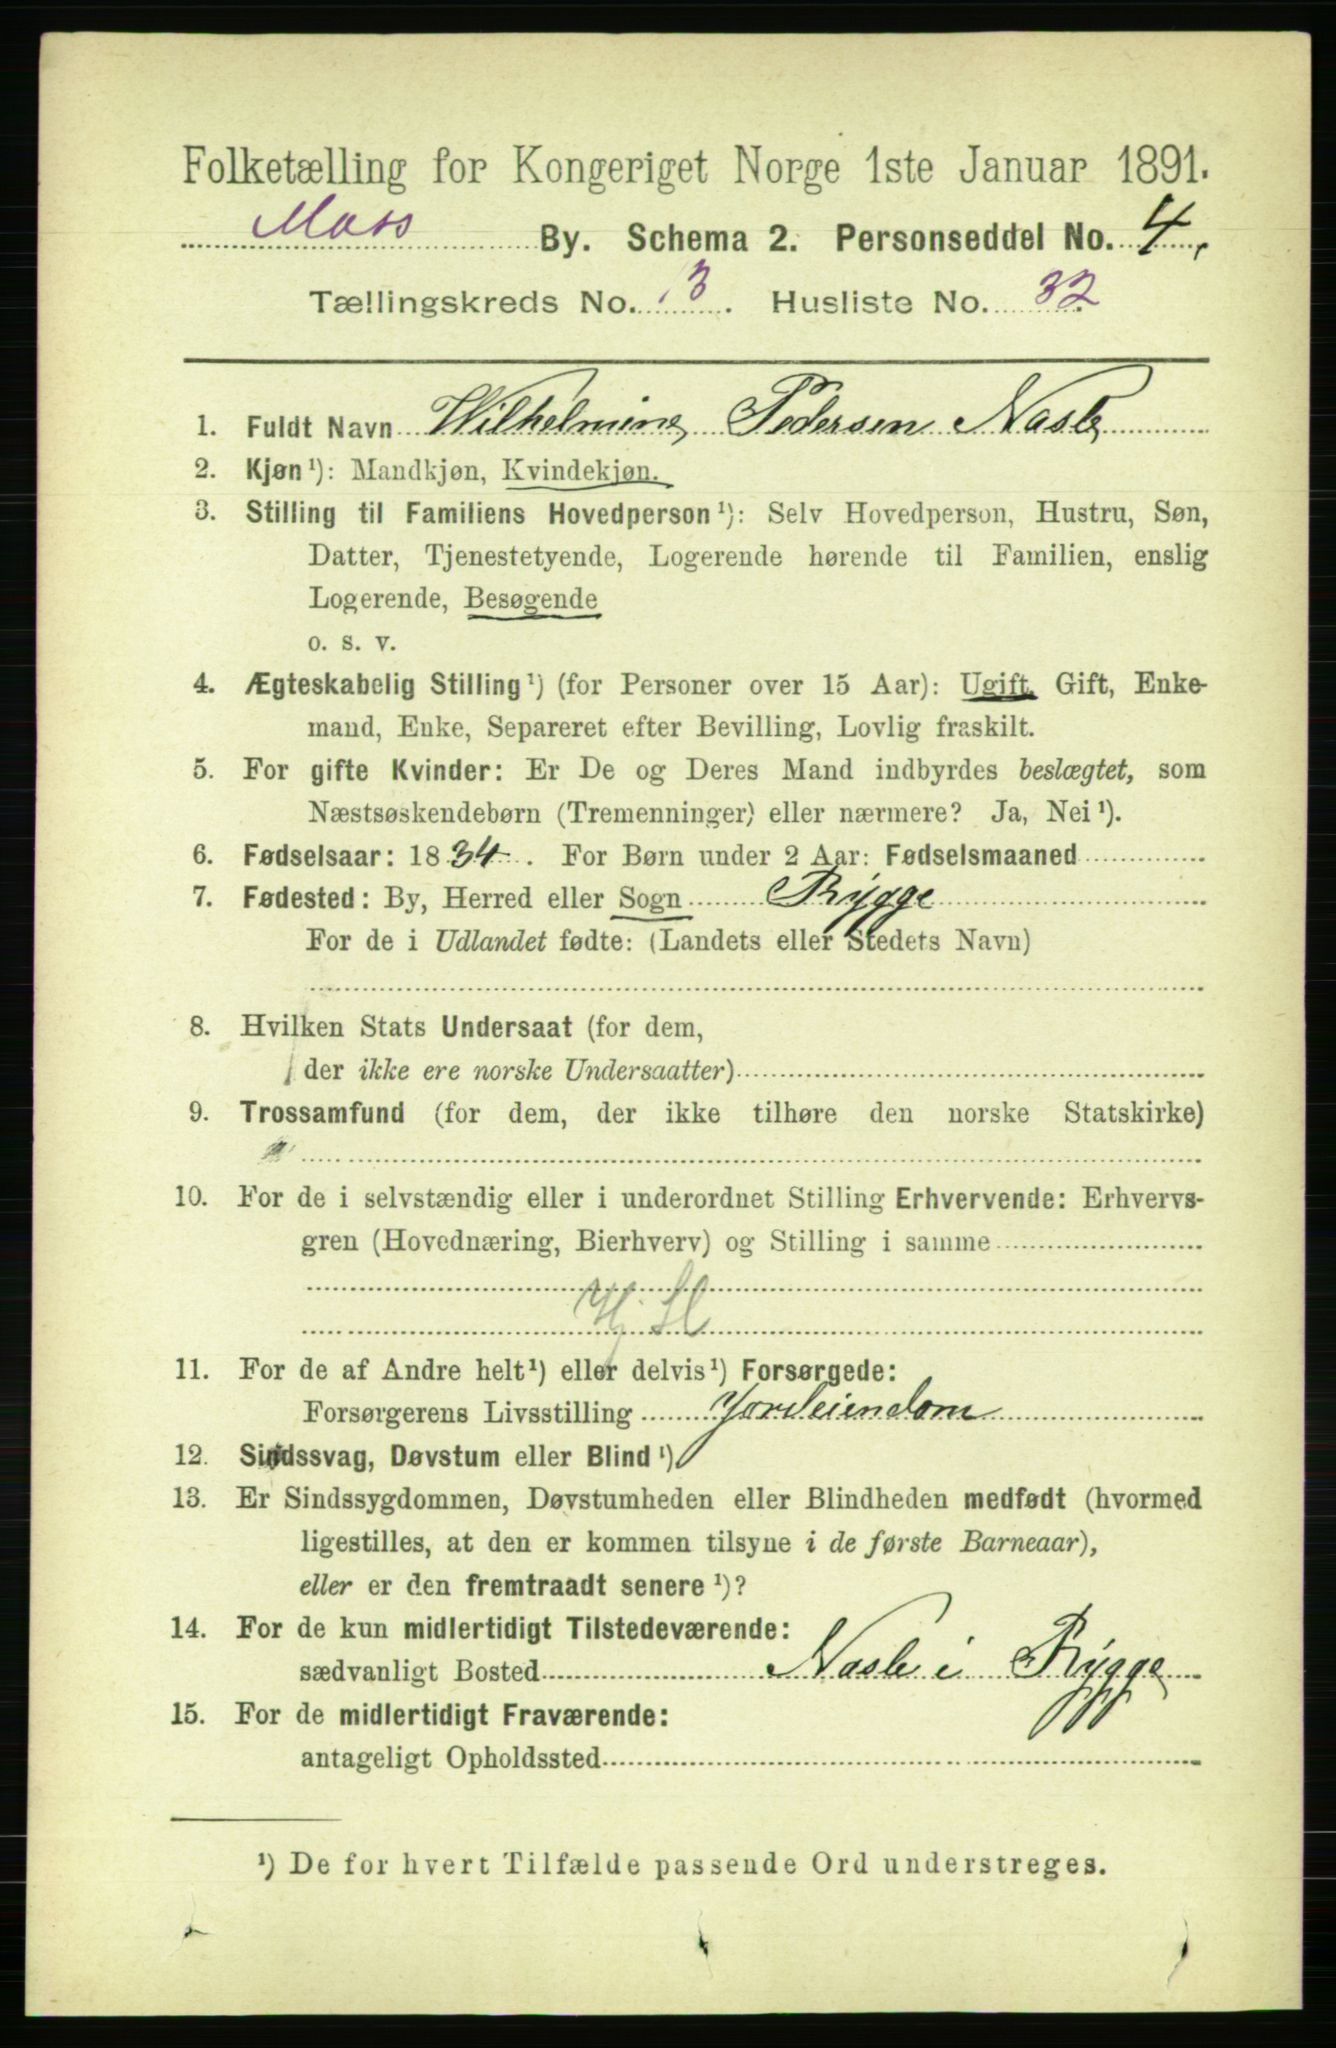 Folketælling for Kongeriget Norge 1ste Januar 1891.
Moss By. Schema 2. Personseddel No. 4,
Tællingskreds No. 13. Husliste No. 32
1. Fuldt Navn Wilhelmine Pedersen Nasle
2. Kjøn¹): Mandkjøn, Kvindekjøn.
3. Stilling til Familiens Hovedperson¹): Selv Hovedperson, Hustru, Søn,
Datter, Tjenestetyende, Logerende hørende til Familien, enslig
Logerende, Besøgende
o. s. v.
4. Ægteskabelig Stilling¹) (for Personer over 15 Aar): Ugift, Gift, Enke-
mand, Enke, Separeret efter Bevilling, Lovlig fraskilt.
5. For gifte Kvinder: Er De og Deres Mand indbyrdes beslægtet, som
Næstsøskendebørn (Tremenninger) eller nærmere? Ja, Nei¹).
6. Fødselsaar: 1834. For Børn under 2 Aar: Fødselsmaaned
7. Fødested: By, Herred eller Sogn Rygge
For de i Udlandet fødte: (Landets eller Stedets Navn)
8. Hvilken Stats Undersaat (for dem,
der ikke ere norske Undersaatter)
9. Trossamfund (for dem, der ikke tilhøre den norske Statskirke)
10. For de i selvstændig eller i underordnet Stilling Erhvervende: Erhvervs-
gren (Hovednæring, Bierhverv) og Stilling i samme
11. For de af Andre helt¹) eller delvis¹) Forsørgede:
Forsørgerens Livsstilling Jordeiendom
12. Sindssvag, Døvstum eller Blind¹)
13. Er Sindssygdommen, Døvstumheden eller Blindheden medfødt (hvormed
ligestilles, at den er kommen tilsyne i de første Barneaar),
eller er den fremtraadt senere¹)?
14. For de kun midlertidigt Tilstedeværende:
sædvanligt Bosted Nasle i Rygge
15. For de midlertidigt Fraværende:
antageligt Opholdssted
¹) De for hvert Tilfælde passende Ord understreges.